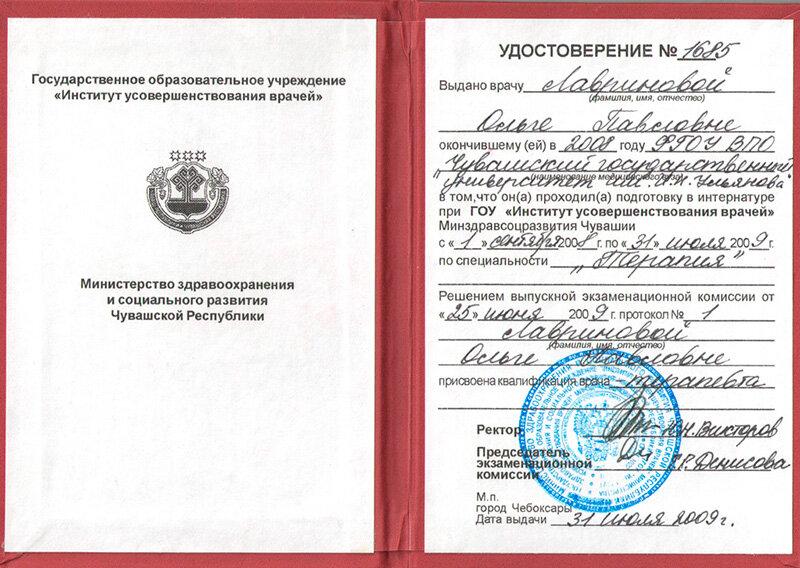 Государственное образовательное учреждение
«Институт усовершенствования врачей»
Министерство здравоохранения
и социального развития
Чувашской Республики
УДОСТОВЕРЕНИЕ № 1685
Выдано врачу Лавриновой
(фамилия, имя, отчество)
Ольге Павловне
окончившему (ей) в 2008 году ФГОУ ВПО
"Чувашский государственный
(наименование медицинского вуза)
университет им. И.Н. Ульянова"
в том,что он(а) проходил(а) подготовку в интернатуре
при ГОУ «Институт усовершенствования врачей»
Минздравсоцразвития Чувашии
с «1» сентября 2008 г. по «31» июля 2009 г.
по специальности "Терапия"
Решением выпускной экзаменационной комиссии от
«25» июня 2009 г. протокол № 1
Лавриновой
(фамилия, имя, отчество)
Ольге Павловне
присвоена квалификация врача - терапевта
Ректор Н.Викторов
Председатель
экзаменационной Г.Р. Денисова
комиссии
М.п.
город Чебоксары
Дата выдачи 31 июля 2009 г.